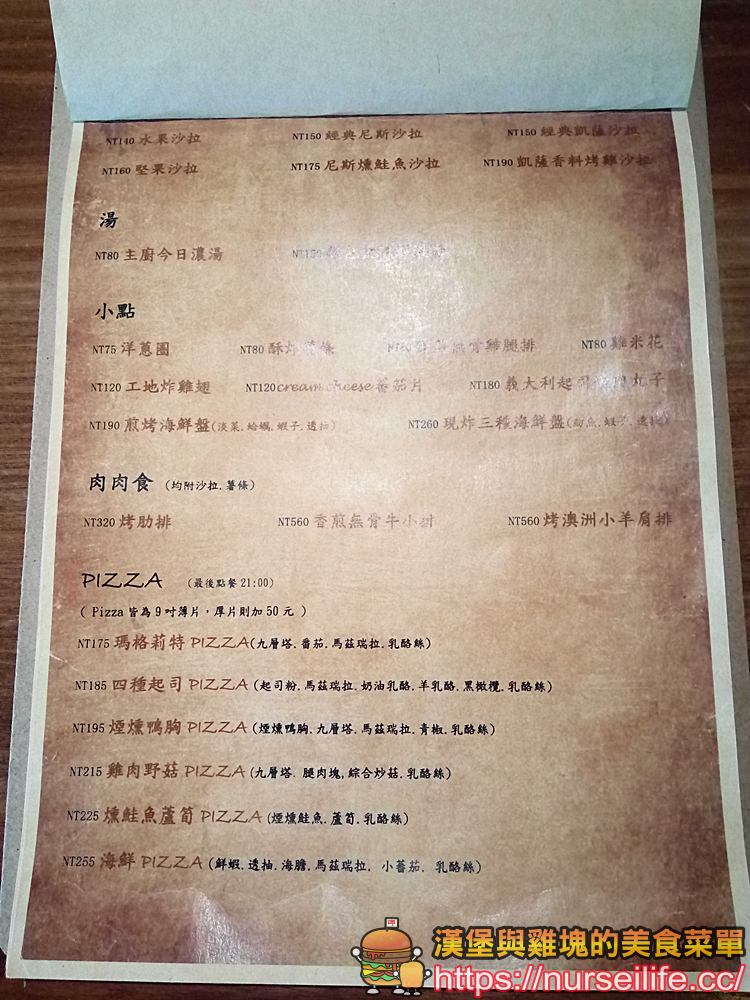 NT140 水果沙拉 NT150 經典尼斯沙拉 NT150 經典凱薩沙拉
NT160 堅果沙拉 NT175 尼斯燻鮭魚沙拉 NT190 凱薩香料烤雞沙拉
湯
NT80 主廚今日濃湯 NT150
小點
NT75 洋蔥圈 NT80 酥炸薯條 無骨雞腿排 NT80 雞米花
NT120 工地炸雞翅 NT120 cream cheese 蕃茄片 NT180 義大利起司 丸子
NT190 煎烤海鮮盤(淡菜.蛤蠣.蝦子.透抽) NT260 現炸三種海鮮盤(魴魚.蝦子.透抽)
肉肉食 (均附沙拉.薯條)
NT320 烤肋排 NT560 香煎無骨牛小排 NT560 烤澳洲小羊肩排
PIZZA (最後點餐 21:00)
( Pizza 皆為 9 吋薄片，厚片則加 50 元 )
NT175 瑪格莉特 PIZZA(九層塔.番茄.馬茲瑞拉.乳酪絲)
NT185 四種起司 PIZZA (起司粉.馬茲瑞拉.奶油乳酪.羊乳酪.黑橄欖.乳酪絲)
NT195 煙燻鴨胸 PIZZA (煙燻鴨胸.九層塔.馬茲瑞拉.青椒.乳酪絲)
NT215 雞肉野菇 PIZZA (九層塔.腿肉塊,綜合炒菇.乳酪絲)
NT225 燻鮭魚蘆筍 PIZZA (煙燻鮭魚.蘆筍.乳酪絲)
NT255 海鮮 PIZZA (鮮蝦.透抽.海膽.馬茲瑞拉. 小蕃茄. 乳酪絲)
漢堡與雞塊的美食菜單
https://nurseilife.cc/